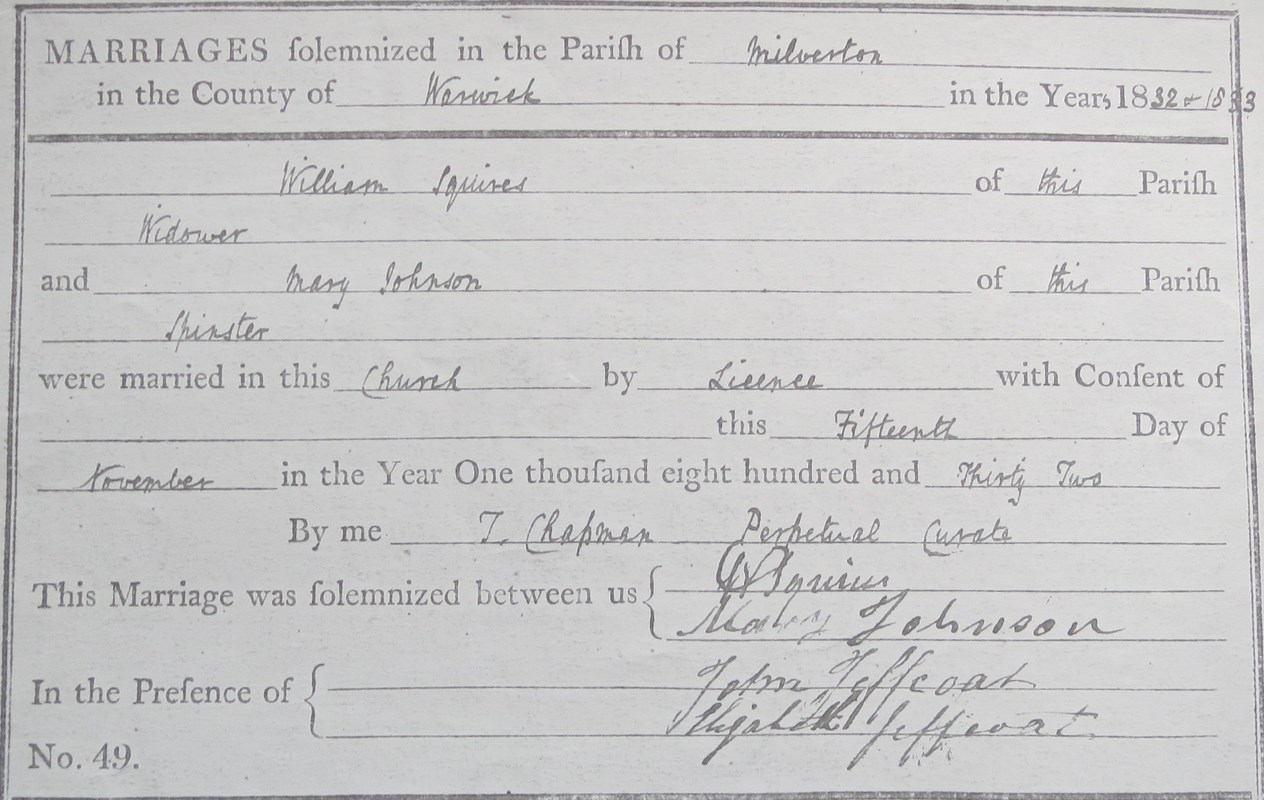 MARRIAGES ſolemnized in the Pariſh of Milverton
in the County of Warwick in the Years 1832 & 1833
William Squires of this Pariſh
Widower
and Mary Johnson of this Pariſh
Spinster
were married in this Church by Licence with Conſent of
this Fifteenth Day of
November in the Year One thouſand eight hundred and Thirty Two
By me T. Chapman Perpetual Curate
This Marriage was ſolemnized between us { Wm Squires
Mary Johnson
In the Preſence of { John Jeffcoat
Elizabeth Jeffcoat
No. 49.